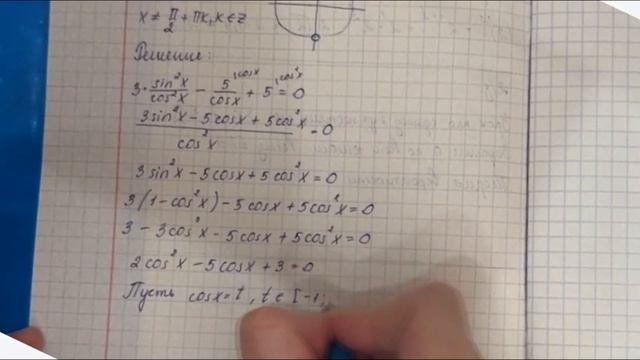 x ≠ π/2 + πk, k ∈ Z
Решение:
3 · sin²x/cos²x − 5/cosx ^(cosx) + 5 ^(cos²x) = 0
(3sin²x − 5cosx + 5cos²x)/cos²x = 0
3sin²x − 5cosx + 5cos²x = 0
3(1 − cos²x) − 5cosx + 5cos²x = 0
3 − 3cos²x − 5cosx + 5cos²x = 0
2cos²x − 5cosx + 3 = 0
Пусть cosx = t, t ∈ [−1;